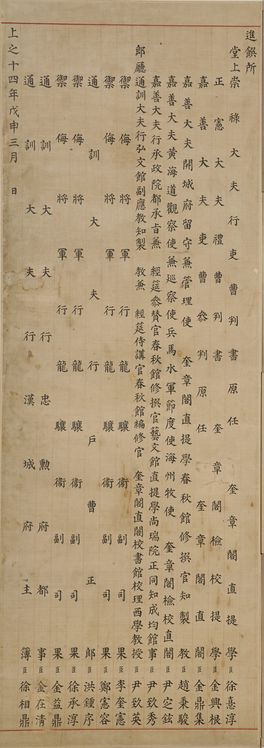 進饌所
堂上崇祿大夫行吏曹判書原任 奎章閣提學臣徐憙淳
正憲大夫禮曹判書奎章閣檢校提學臣金興根
嘉善大夫吏曹參判原任 奎章閣直閣臣金鼎集
嘉善大夫開城府留守兼管理使 奎章閣直提學春秋館修撰官知製 教臣趙秉駿
嘉善大夫黃海道觀察使兼巡察使兵馬水軍節度使海州牧使 奎章閣檢校直閣臣尹定鉉
嘉善大夫行承政院都承旨兼 經筵參贊官春秋館修撰官藝文館直提學尚瑞院正同知成均館事臣尹致秀
郞廳通訓大夫行弘文館副應教知製 教兼 經筵侍講官春秋館編修官 奎章閣直閣校書館校理西學教授臣尹致英
禦侮將軍行龍驤衛副司果臣李奎憲
禦侮將軍行龍驤衛副司果臣鄭憲容
通訓大夫行戶曹正郞臣洪鍾序
禦侮將軍行龍驤衛副司果臣徐承淳
禦侮將軍行龍驤衛副司果臣金益鼎
通訓大夫行忠勳府都事臣金在清
通訓大夫行漢城府主簿臣徐相鼎
上之十四年戊申三月 日